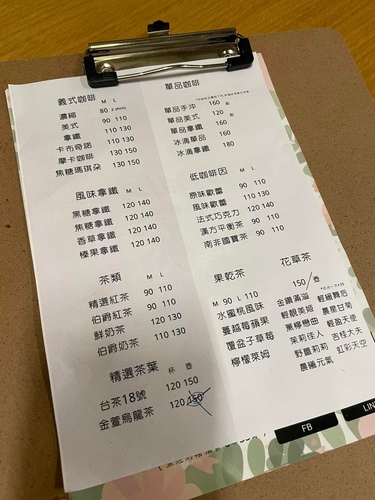 義式咖啡 M L
濃縮 80 2 shots
美式 90 110
拿鐵 110 130
卡布奇諾 110 130
摩卡咖啡 130 150
焦糖瑪琪朵 130 150
風味拿鐵 M L
黑糖拿鐵 120 140
焦糖拿鐵 120 140
香草拿鐵 120 140
榛果拿鐵 120 140
茶類 M L
精選紅茶 90 110
伯爵紅茶 90 110
鮮奶茶 120 130
伯爵奶茶 110 130
精選茶葉 杯 壺
台茶18號 120 150
金萱烏龍茶 120 150
單品咖啡
單品手沖 160
單品美式 120
單品拿鐵 160
冰滴單品 160
冰滴拿鐵 180
低咖啡因 M L
原味歐蕾 90 110
風味歐蕾 110 130
法式巧克力 120 140
漢方平衡茶 90 110
南非國寶茶 90 110
果乾茶
M 90 L 110
水蜜桃風味
蔓越莓蘋果
覆盆子草莓
檸檬萊姆
花草茶
150/壺
金鑽滿溢 輕纖舞后
輕靚美姬 晨星甘菊
紫檸戀曲 輕盈天使
茉莉佳人 吉桂大夫
野薑莉莉 虹彩天空
晨曦元氣
FB
LIN